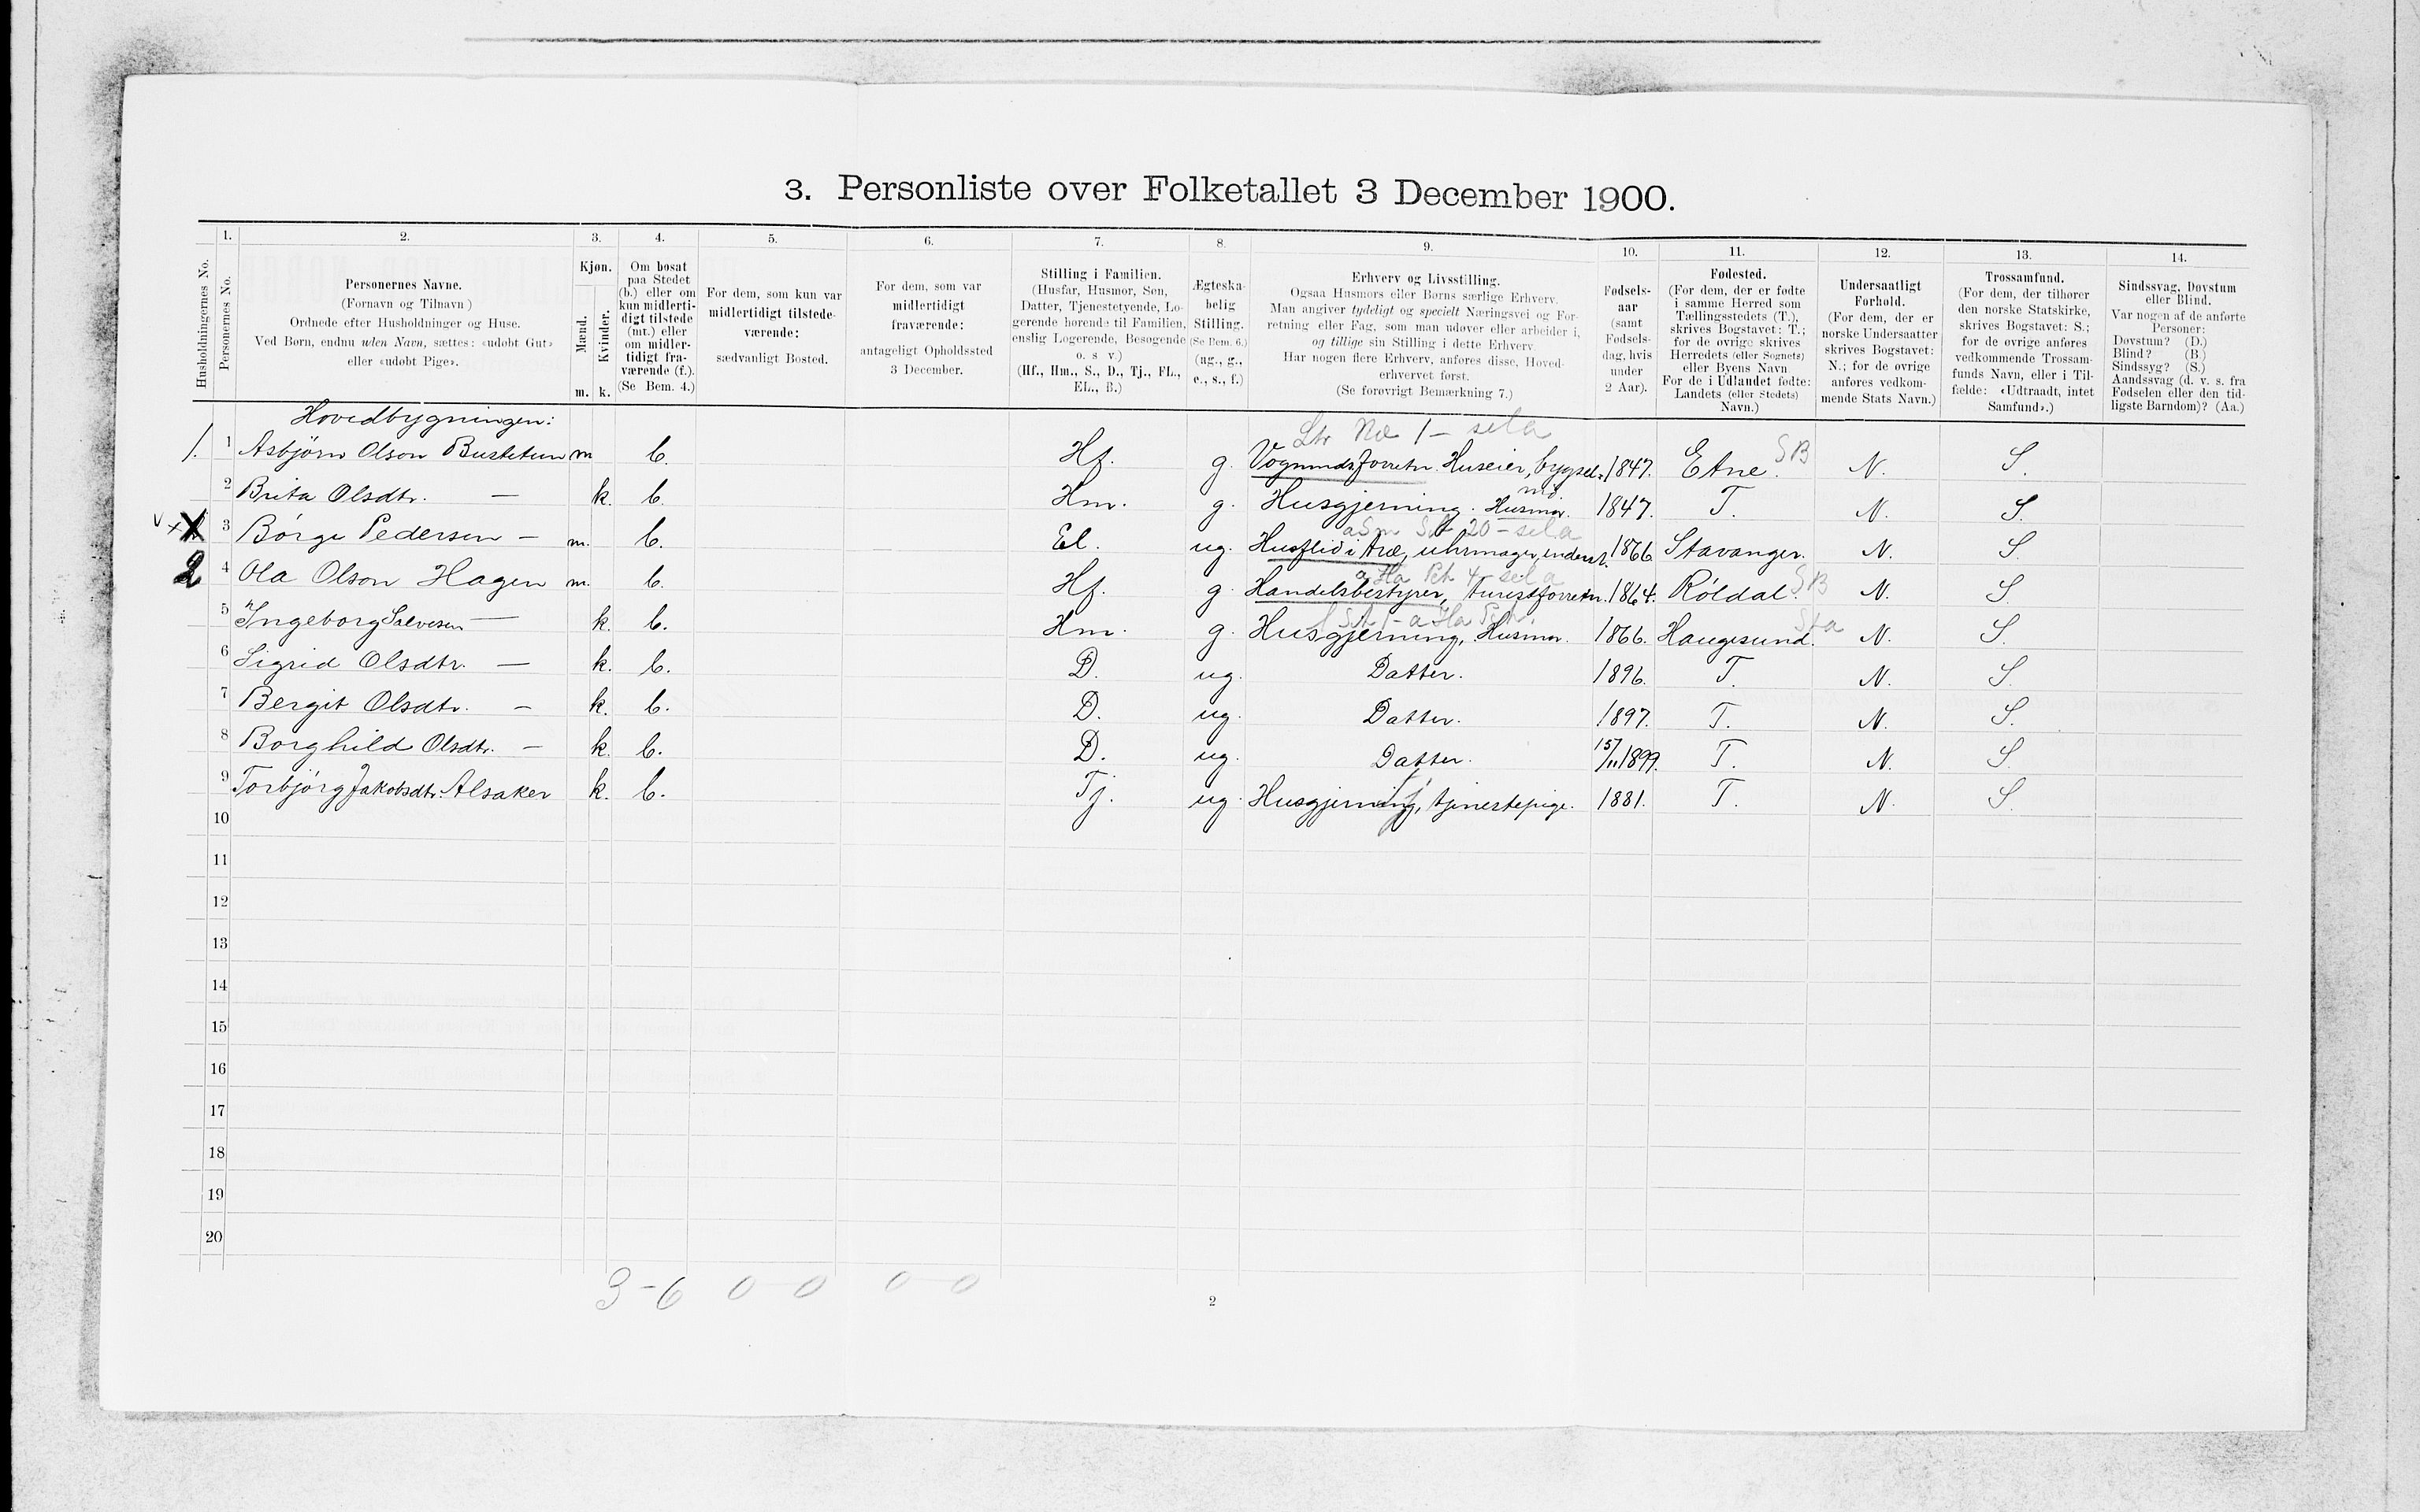 3. Personliste over Folketallet 3 December 1900.
1. 2. 3. 4. 5. 6. 7. 8. 9. 10. 11. 12. 13. 14.
Husholdningernes No.
Personernes No.
Personernes Navne.
(Fornavn og Tilnavn)
Ordnede efter Husholdninger og Huse.
Ved Børn, endnu uden Navn, sættes: «udøbt Gut»
eller «udøbt Pige».
Kjøn.
Mænd.
Kvinder.
m. k.
Om bosat
paa Stedet
(b.) eller om
kun midlerti-
digt tilstede
(mt.) eller
om midler-
tidigt fra-
værende (f.).
(Se Bem. 4.)
For dem, som kun var
midlertidigt tilstede-
værende:
sædvanligt Bosted.
For dem, som var
midlertidigt
fraværende:
antageligt Opholdssted
3 December.
Stilling i Familien.
(Husfar, Husmor, Søn,
Datter, Tjenestetyende, Lo-
gerende hørende til Familien,
enslig Logerende, Besøgende
o. s v.)
(Hf., Hm., S., D., Tj., FL.,
EL., B.)
Ægteska-
belig
Stilling.
(Se Bem. 6.)
(ug., g.,
e., s., f.)
Erhverv og Livsstilling.
Ogsaa Husmors eller Børns særlige Erhverv.
Man angiver tydeligt og specielt Næringsvei og For-
retning eller Fag, som man udøver eller arbeider i,
og tillige sin Stilling i dette Erhverv.
Har nogen flere Erhverv, anføres disse, Hoved-
erhvervet først.
(Se forøvrigt Bemærkning 7.)
Fødsels-
aar
(samt
Fødsels-
dag, hvis
under
2 Aar).
Fødested.
(For dem, der er fødte
i samme Herred som
Tællingsstedets (T.),
skrives Bogstavet: T.;
for de øvrige skrives
Herredets (eller Sognets)
eller Byens Navn
For de i Udlandet fødte:
Landets (eller Stedets)
Navn.)
Undersaatligt
Forhold.
(For dem, der er
norske Undersaatter
skrives Bogstavet:
N.; for de øvrige
anføres vedkom-
mende Stats Navn.)
Trossamfund.
(For dem, der tilhører
den norske Statskirke,
skrives Bogstavet: S.;
for de øvrige anføres
vedkommende Trossam-
funds Navn, eller i Til-
fælde: «Udtraadt, intet
Samfund».)
Sindssvag, Døvstum
eller Blind.
Var nogen af de anførte
Personer:
Døvstum? (D.)
Blind? (B.)
Sindssyg? (S.)
Aandssvag (d. v. s. fra
Fødselen eller den tid-
ligste Barndom)? (Aa.)
Hovedbygningen:
1. 1 Asbjørn Olson Bustetun m b. Hf. g. Huseier, 1847. Etne. SB N. S.
2 Brita Olsdtr. — k. b. Hm. g. Husgjerning. Husmor. 1847. T. N. S.
3 Børge Pedersen — m. b. El. ug. Husflid i Træ, uhrmager, 1866 Stavanger. N. S.
2 4 Ola Olson Hagen m. b. Hf. g. Handelsbestyrer, turistforretn. 1864. Røldal. SB N. S.
5 Ingeborg Salvesen — k. b. Hm. g. Husgjerning, Husmor. 1866. Haugesund. Sta N. S.
6 Sigrid Olsdtr. — k. b. D. ug. Datter. 1896. T. N. S.
7 Bergit Olsdtr. — k. b. D. ug. Datter. 1897. T. N. S.
8 Borghild Olsdtr. — k. b. D. ug. Datter. 15/11 1899. T. N. S.
9 Torbjørg Jakobsdtr. Alsaker k. b. Tj. ug. Husgjerning, tjenestepige. 1881. T. N. S.
10
11
12
13
14
15
16
17
18
19
20
3 - 6 0 - 0 0 - 0
2